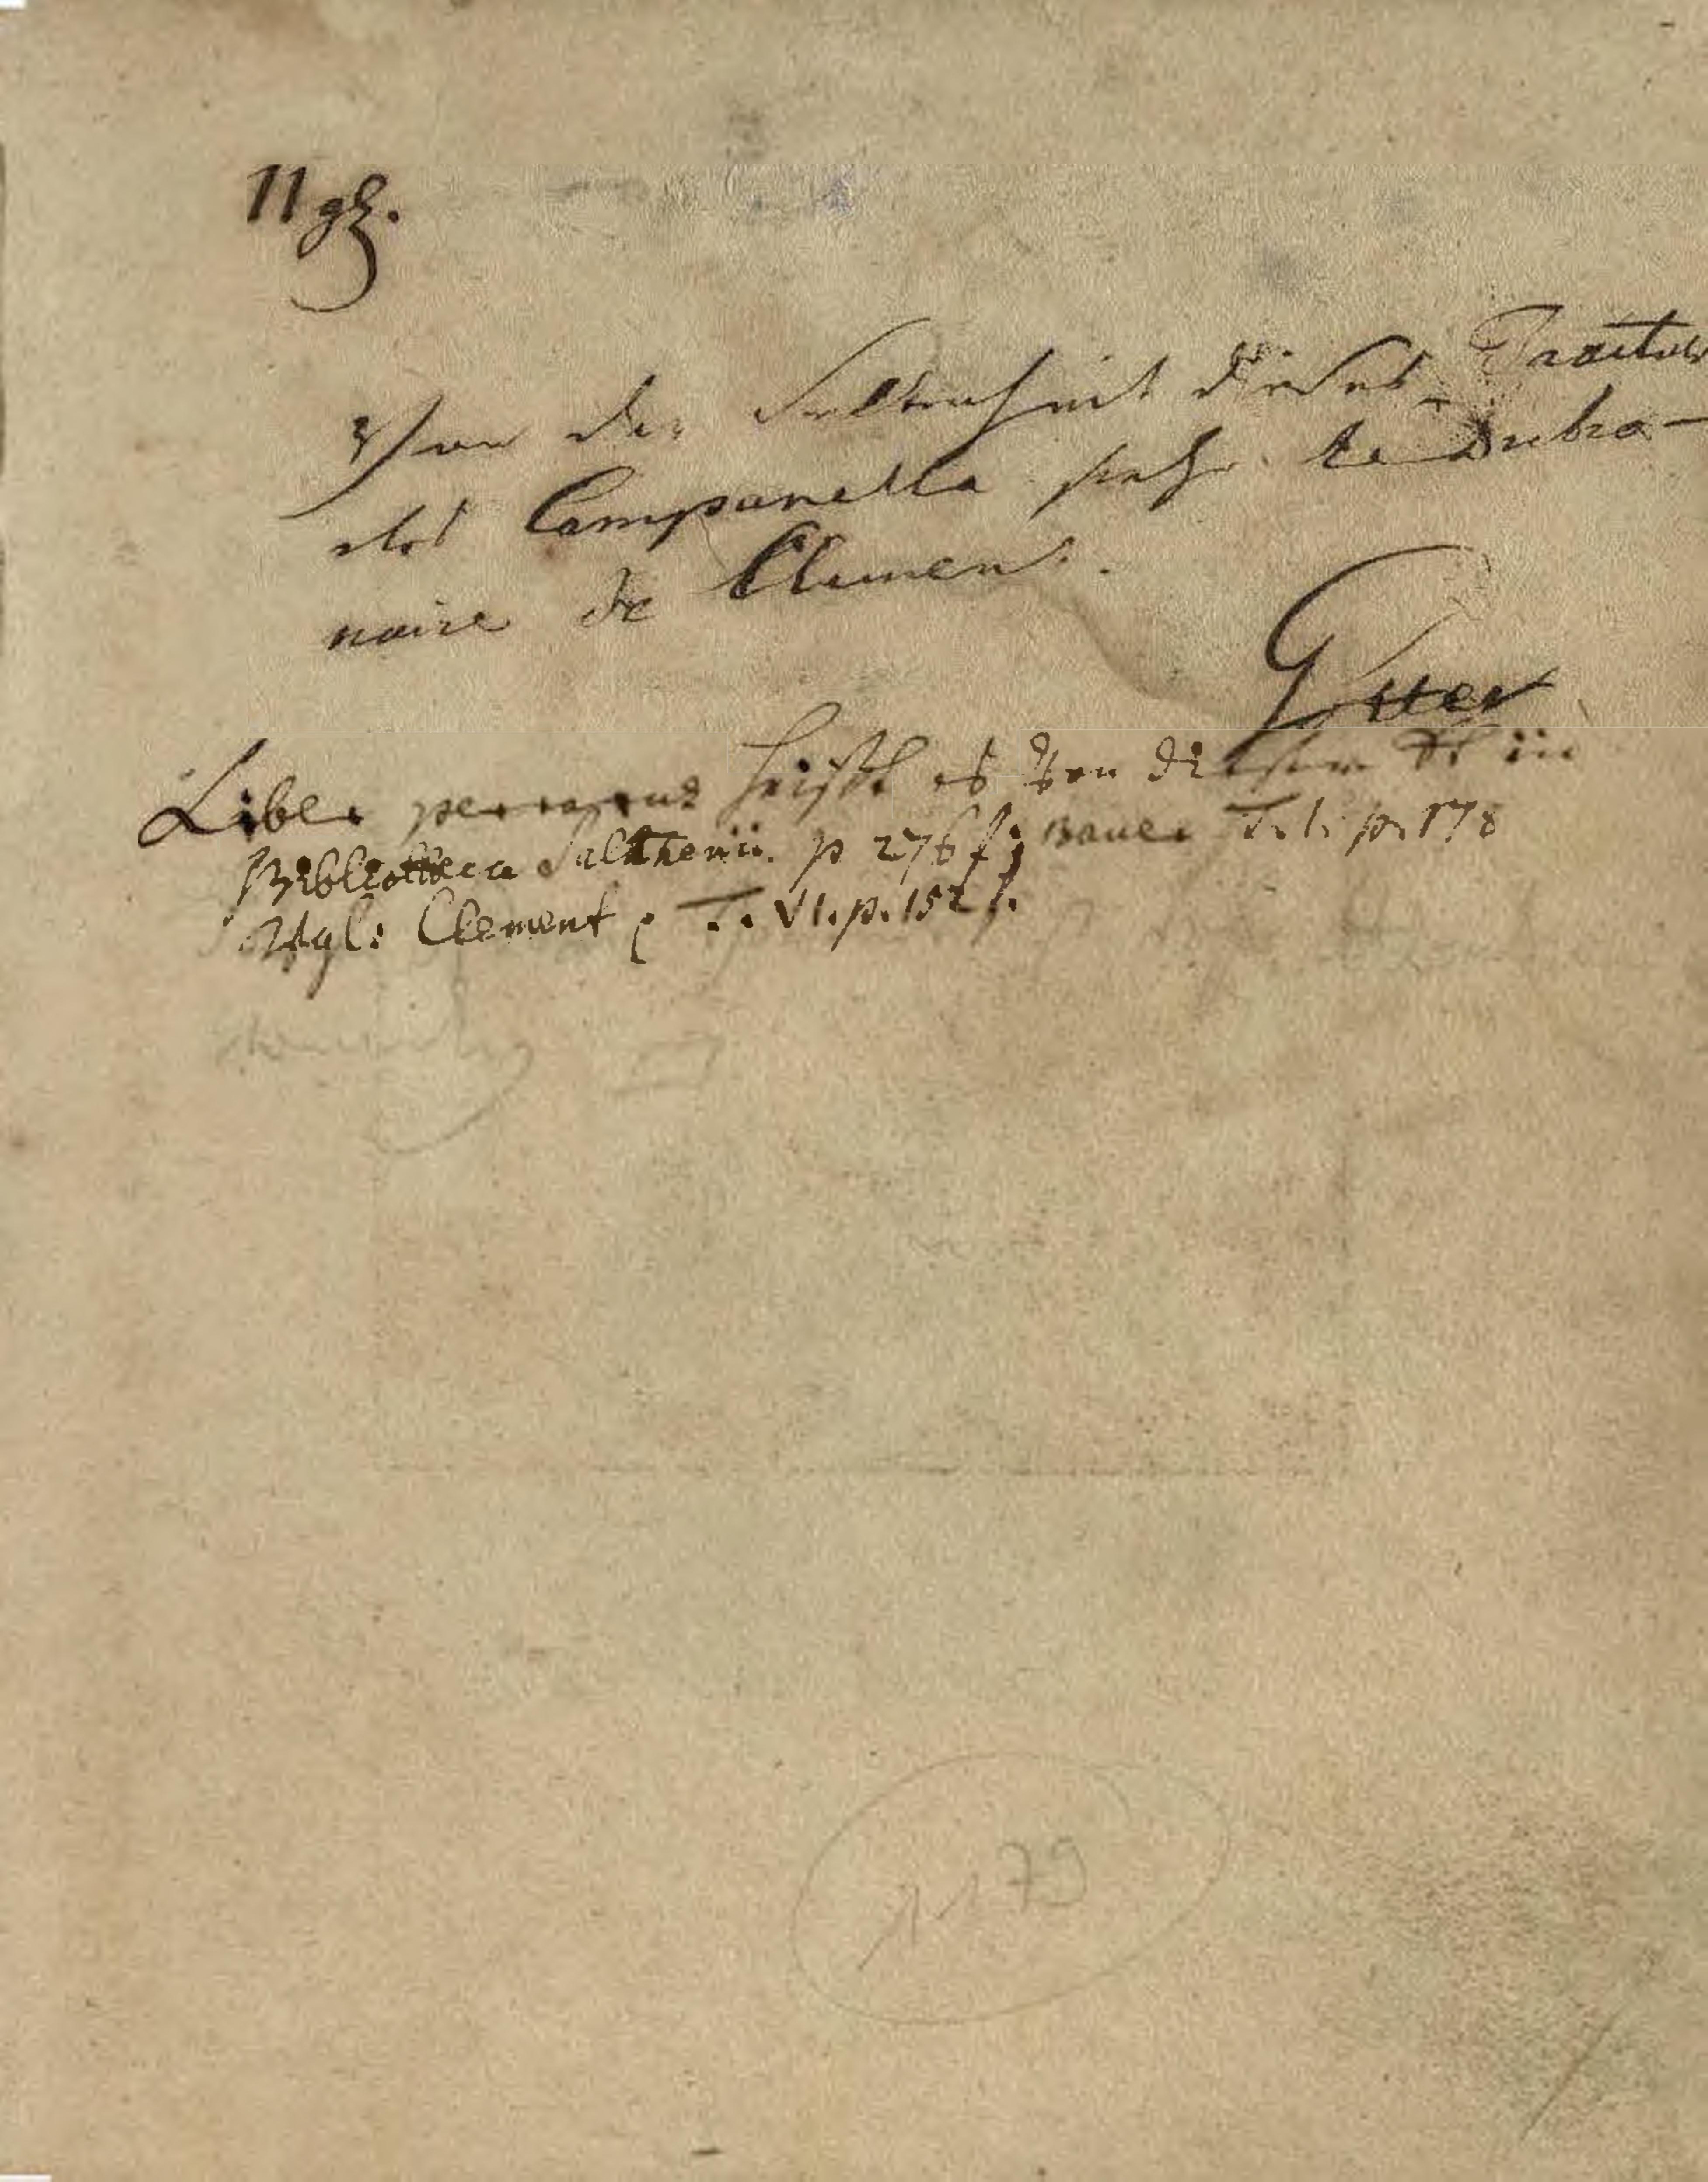 11 gl.
Von der Seltenheit dieses Tractats
des Campanella sehe le Dictio-
naire de Clement.
Liber perrarus heißt es von diesem in
Bibliotheca Salthenii. p 276 f; Bauer T. I. p. 178
Vgl: Clement T. VI. p. 152 f.
1179